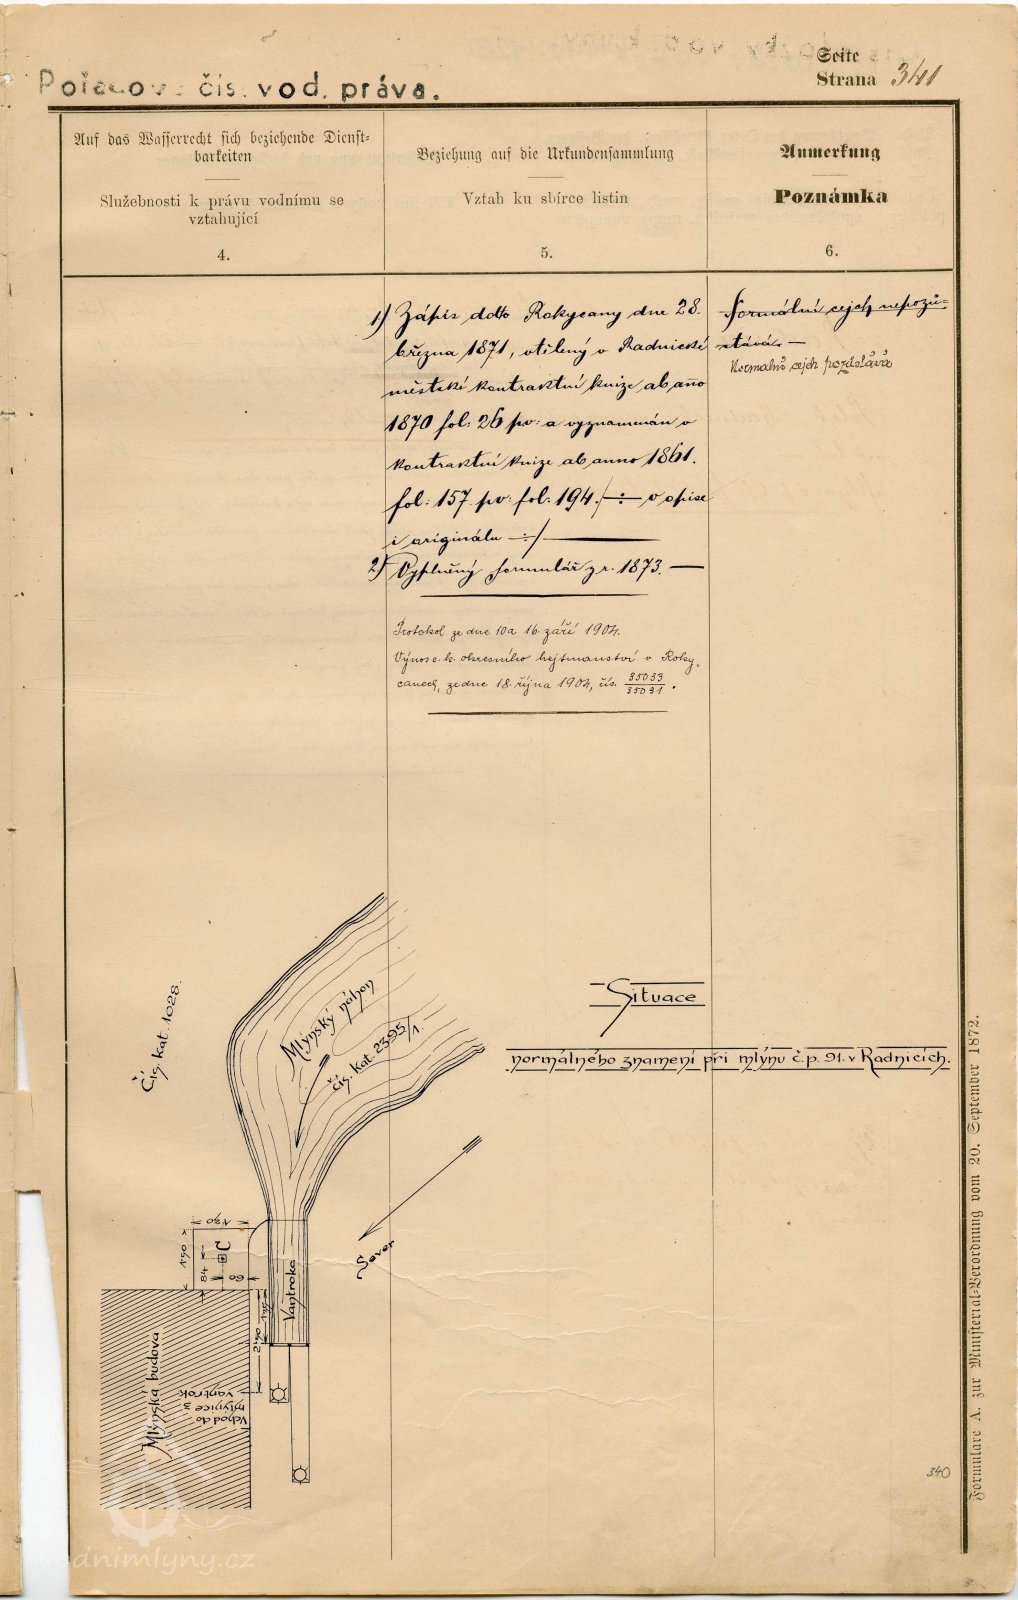 Seite
Strana 341
Pořadov. čís. vod. práva.
Auf das Wasserrecht sich beziehende Dienst-
barkeiten
Služebnosti k právu vodnímu se
vztahující
4.
Beziehung auf die Urkundensammlung
Vztah ku sbírce listin
5.
Anmerkung
Poznámka
6.
1) Zápis ddto Rokycany dne 28.
března 1871, vtělený v Radnické
městské kontraktní knize ab anno
1870 fol: 26 pv: a vyznamenán v
kontraktní knize ab anno 1861.
fol: 157. pv: fol: 194. /—:— v opise
i originálu —:/—
2) Vyplněný formulář z r. 1873. —
Protokol ze dne 10 a 16. září 1904.
Výnos c. k. okresního hejtmanství v Roky-
canech, ze dne 18. října 1904, čís. 35033
35031.
formální cejch nepozů-
stává. —
Normální cejch pozůstává
Situace
normálného znamení při mlýnu č. p. 91. v Radnicích.
Čís. kat. 1028.
Mlýnský náhon
čís. kat. 2395/1.
Sever
Vantroka
C
1·50
1·90
84
69
2·90
Mlýnská budova
Vchod do
mlýnice 3
vantrok
Formulare A. zur Ministerial-Verordnung vom 20. September 1872.
340
vodnimlyny.cz